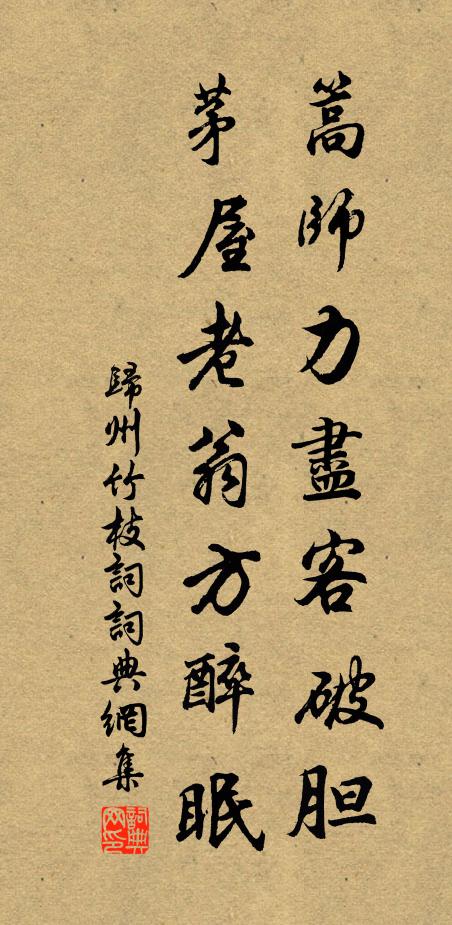 蒿師力盡客破胆
茅屋老翁方醉眠
歸州竹枝詞詞典網集
詞典網印